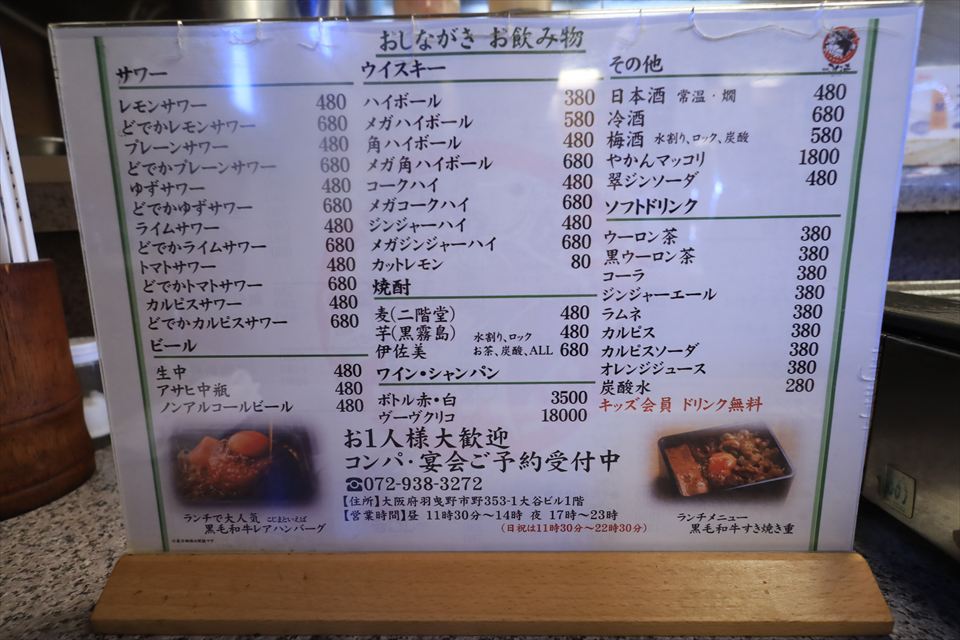 おしながき お飲み物
サワー
レモンサワー 480
どでかレモンサワー 680
プレーンサワー 480
どでかプレーンサワー 680
ゆずサワー 480
どでかゆずサワー 680
ライムサワー 480
どでかライムサワー 680
トマトサワー 480
どでかトマトサワー 680
カルピスサワー 480
どでかカルピスサワー 680
ビール
生中 480
アサヒ中瓶 480
ノンアルコールビール 480
ウイスキー
ハイボール 380
メガハイボール 580
角ハイボール 480
メガ角ハイボール 680
コークハイ 480
メガコークハイ 680
ジンジャーハイ 480
メガジンジャーハイ 680
カットレモン 80
焼酎
麦(二階堂) 480
芋(黒霧島) 水割り、ロック 480
伊佐美 お茶、炭酸、ALL 680
ワイン・シャンパン
ボトル赤・白 3500
ヴーヴクリコ 18000
その他
日本酒 常温・燗 480
冷酒 680
梅酒 水割り、ロック、炭酸 580
やかんマッコリ 1800
翠ジンソーダ 480
ソフトドリンク
ウーロン茶 380
黒ウーロン茶 380
コーラ 380
ジンジャーエール 380
ラムネ 380
カルピス 380
カルピスソーダ 380
オレンジジュース 380
炭酸水 280
キッズ会員 ドリンク無料
お1人様大歓迎
コンパ・宴会ご予約受付中
☎072-938-3272
【住所】大阪府羽曳野市野353-1大谷ビル1階
【営業時間】昼 11時30分〜14時 夜 17時〜23時
(日祝は11時30分〜22時30分)
ランチで大人気 こじまといえば
黒毛和牛レアハンバーグ
ランチメニュー
黒毛和牛すき焼き重